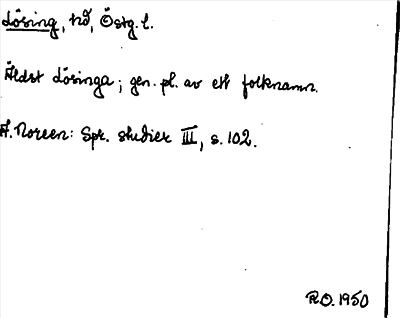 Lösing, hd, Östg. l.
Äldst Lösinga; gen. pl. av ett folknamn.
A. Noreen: Spr. studier III, s. 102.
R.O. 1950